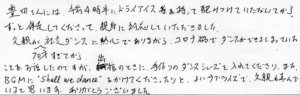 豊田さんには、午前4時半にドライアイス等を持って駆けつけていただいてから
ずっと併走してくださって、親身に対応していただきました。
父親が社交ダンスに熱心でありながら、コロナ禍でダンスができなくていた
ことを話したのですが、出棺のときに、手作りのダンスシューズを入れてくださり、また
BGMに"Shall we dance"をかけてくださったりと、というサプライズで、父親も喜んで
いると思います。ありがとうございました